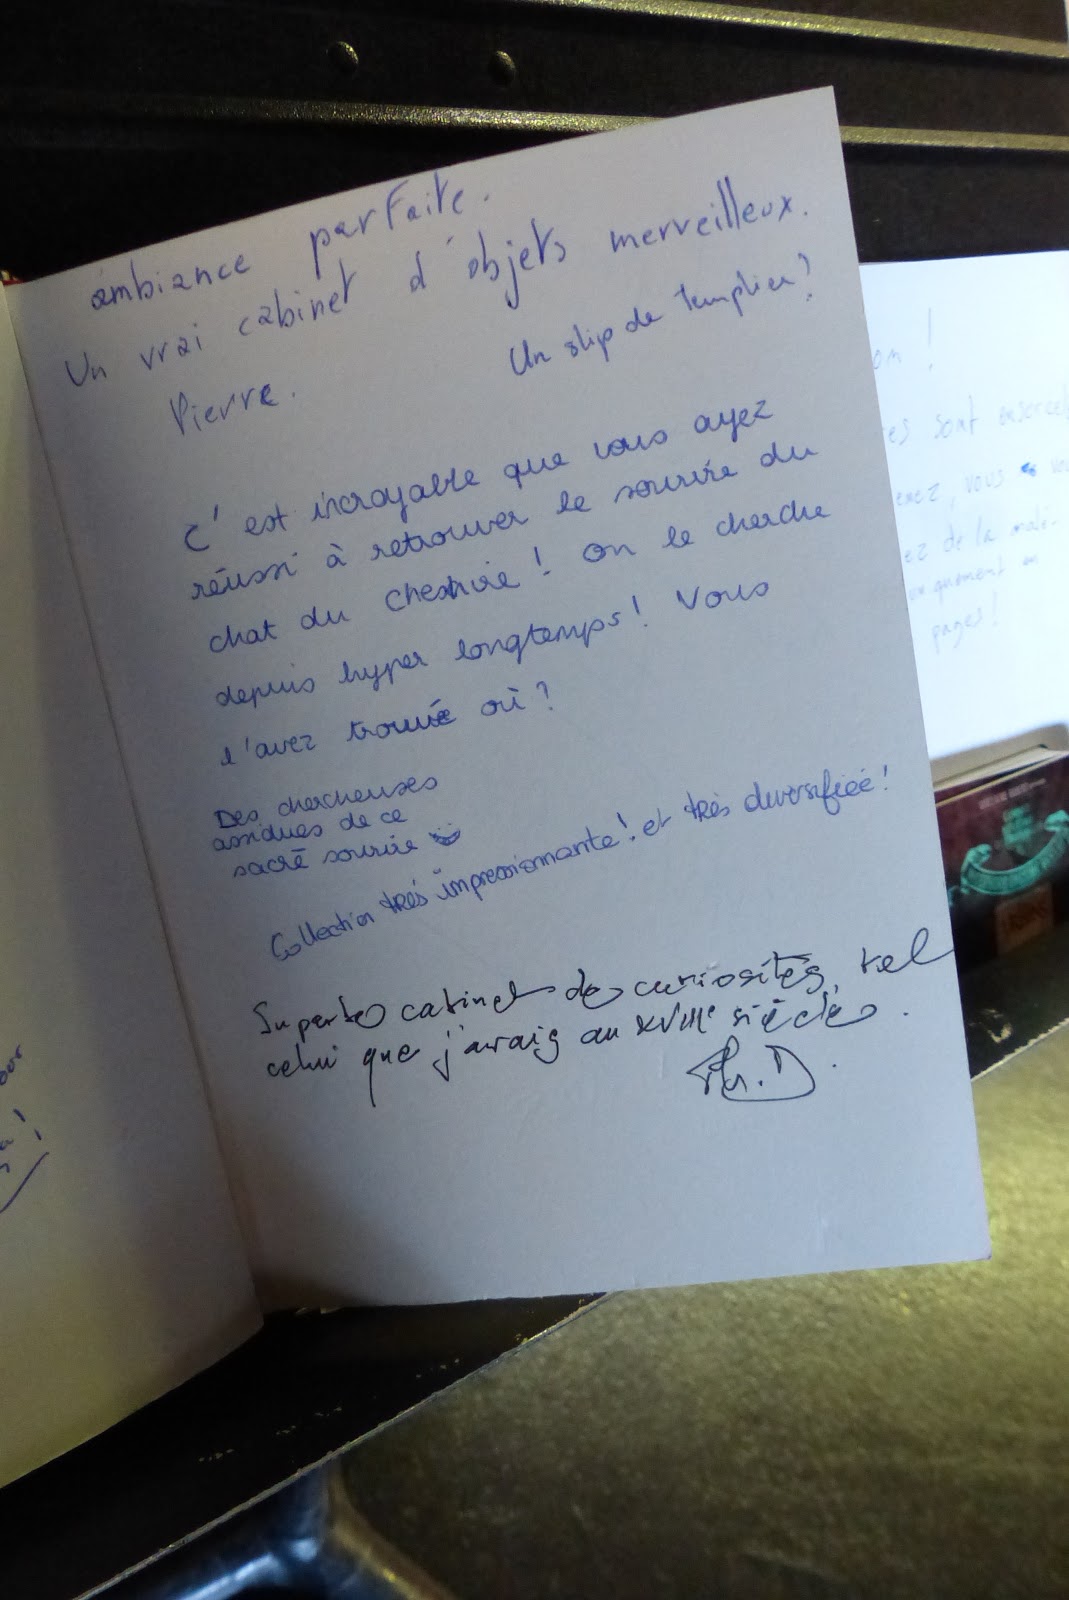 ambiance parfaite.
Un vrai cabinet d'objets merveilleux.
Pierre.
Un slip de templier?
C'est incroyable que vous ayez
réussi à retrouver le sourire du
chat du cheshire! On le cherche
depuis hyper longtemps! Vous
l'avez trouvé où?
Des chercheuses
assidues de ce
sacré sourire
Collection très impressionnante! et très diversifiée!
Superbe cabinet de curiosités, tel
celui que j'avais au XVIIIe siècle.
on!
es sont
vous
ez de la malé-
uniquement en
pages!